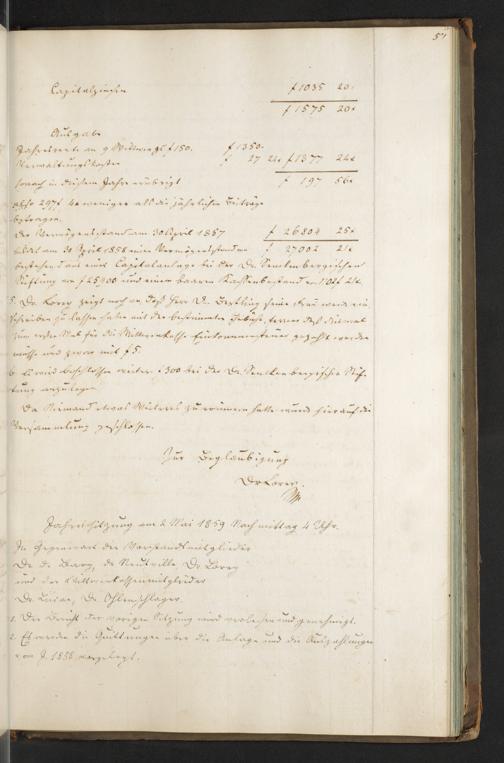 57
Capitalzinsen f 1035 20x
f 1575 20x
Ausgabe
Jahresrente an 9 Wittwen zu f 150. f 1350.
Verwaltungskosten f 27 24x f 1377 24x
sonach in diesem Jahre erübrigt f 197 56x
also 297f 4x weniger als die jährlichen Beiträge
betragen.
Der Vermögensstand am 30 April 1857 f 26804 25x
am 30 April 1858 ein Vermögensstand von f 27002 21x
bestehend aus einer Capitalanlage bei der Dr. Senckenbergischen
Stiftung von f 25900 und einem baaren Kassenbestand
5. Dr. Lorey zeigt noch an, daß Herr Dr. seine Frau
schreiben zu lassen habe mit der bestimmten ferner daß diesmal
zum ersten Mal für die Wittwenkasse Einkommensteuer gezahlt werden
müsse und zwar mit f 5.
6. Es wird beschlossen weitere f 300 bei der Dr. Senckenbergischen Stif-
tung anzulegen.
Da Niemand etwas Weiteres zu erinnern hatte wurde hierauf die
Versammlung geschlossen.
Zur Beglaubigung
Dr Lorey.
Jahressitzung am 2 Mai 1859 Nachmittag 4 Uhr.
In Gegenwart der Vorstandsmitglieder
Dr. de Bary, de Neufville, Dr Lorey
und der Wittwenkassenmitglieder
Dr Lucae, Dr. Ohlenschlager
1. Der Bericht der vorigen Sitzung wird verlesen und genehmigt.
2. Es werden die Quittungen über die Anlage und die Auszahlungen
von J. 1858 vorgelegt.